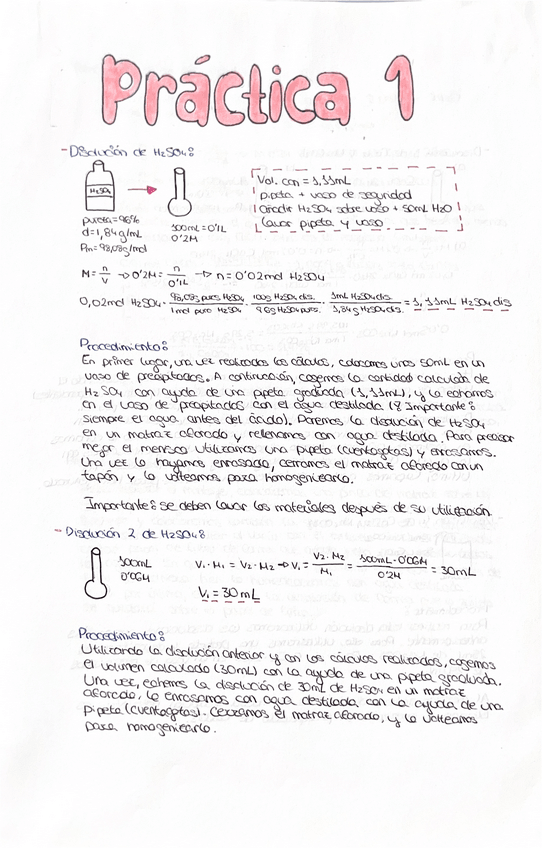 Práctica 1
- Disolución de H₂SO₄:
H₂SO₄
pureza=96%
d=1,84g/mL
Pm=98,08g/mol
100mL=0'1L
0'2M
Vol. con = 1,11mL
pipeta + vaso de seguridad
Añadir H₂SO₄ sobre vaso + 50mL H₂O
lavar pipeta y vaso
M = n/V → 0'2M = n/0'1L → n = 0'02mol H₂SO₄
0,02mol H₂SO₄ · 98,08g puros H₂SO₄/1mol puro H₂SO₄ · 100g H₂SO₄ dis./96g H₂SO₄ puros. · 1mL H₂SO₄ dis./1,84g H₂SO₄ dis. = 1,11mL H₂SO₄ dis
Procedimiento:
En primer lugar, una vez realizados los cálculos, colocamos unos 50mL en un
vaso de precipitados. A continuación, cogemos la cantidad calculada de
H₂SO₄ con ayuda de una pipeta graduada (1,11mL), y la echamos
en el vaso de precipitados con el agua destilada (Importante:
siempre el agua antes del ácido). Ponemos la disolución de H₂SO₄
en un matraz aforado y rellenamos con agua destilada. Para precisar
mejor el menisco utilizamos una pipeta (cuentagotas) y enrasamos.
Una vez lo hayamos enrasado, cerramos el matraz aforado con un
tapón y lo volteamos para homogeneizarlo.
Importante: se deben lavar los materiales después de su utilización.
- Disolución 2 de H₂SO₄:
100mL
0'06M
V₁ · M₁ = V₂ · M₂ → V₁ = V₂ · M₂/M₁ = 100mL · 0'06M/0'2M = 30mL
V₁ = 30mL
Procedimiento:
Utilizando la disolución anterior y con los cálculos realizados, cogemos
el volumen calculado (30mL) con la ayuda de una pipeta graduada.
Una vez, echemos la disolución de 30mL de H₂SO₄ en un matraz
aforado, lo enrasamos con agua destilada con la ayuda de una
pipeta (cuentagotas). Cerramos el matraz aforado, y lo volteamos
para homogeneizarlo.